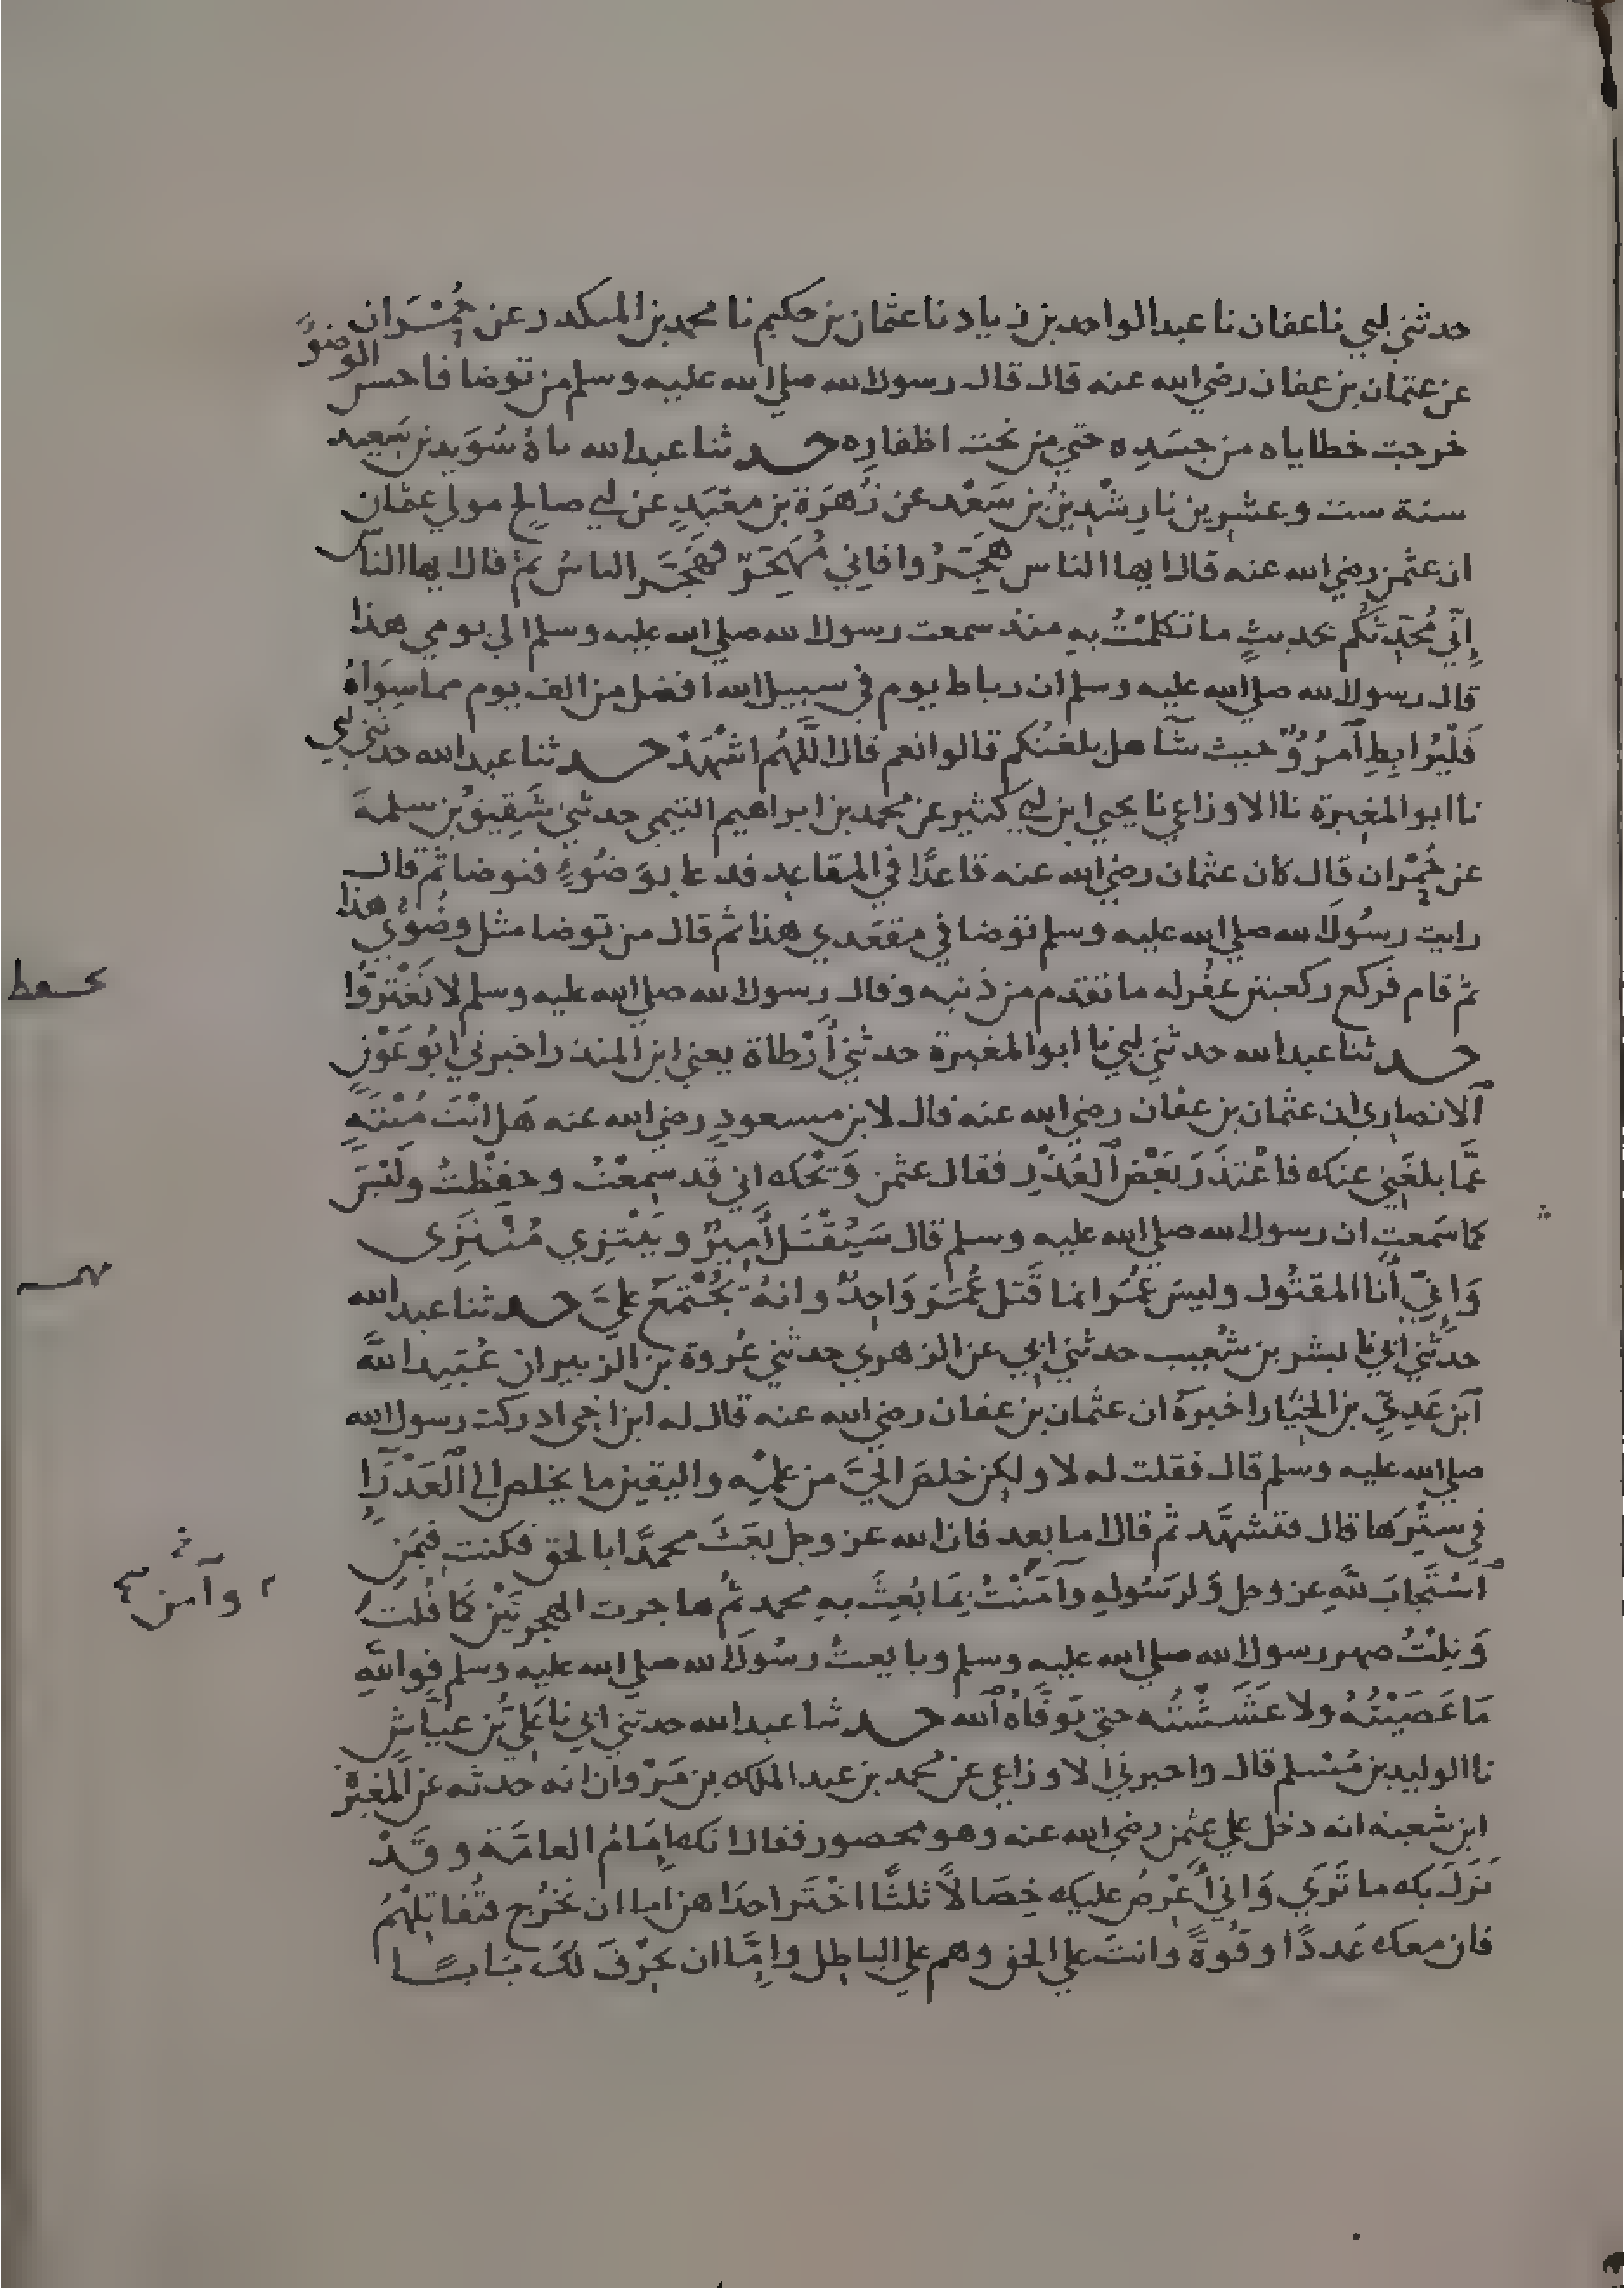 حدثني ابي نا عفان نا عبد الواحد بن زياد نا عثمان بن حكيم نا محمد بن المنكدر عن حُمْرَان
عن عثمان بن عفان رضي الله عنه قال قال رسول الله صلى الله عليه وسلم من توضا فاحسن الوضوءَ
خرجت خطاياه من جسَدِه حتي من تحت اظفارِه حدثنا عبد الله نا سُوَيد بن سَعِيد
سنة ست وعشرين نا رِشْدِينُ بن سَعْد عن زُهرَة بن مَعْبَدٍ عن ابي صالح مولي عثمان
ان عثمن رضي الله عنه قال ايها الناس هَجِّرُوا فاني مُهَجِّرٌ فهَجَّرَ الناسُ ثم قال ايها الناس
إنّي مُحَدِّثُكُم بحديثٍ ما تكلمْتُ بهِ منذ سمعت رسول الله صلي الله عليه وسلم الي يومي هذا
قال رسول الله صلي الله عليه وسلم ان رباط يوم في سبيل الله افضل من الف يوم مما سِوَاهُ
فَلْيُرابِطِ آمرُؤٌ حيث شآ هل بلغتُكم قالوا نعم قال اللَّهُم اشْهَدْ حدثنا عبد الله حدثني ابي
نا ابو المغيرة نا الاوزاعي نا يحيي ابن ابي كثير عن محمد بن ابراهيم التيمي حدثني شَقِيقُ بن سلمةَ
عن حُمْرَان قال كان عثمان رضي الله عنه قاعدًا في المقاعِدِ فدعا بوَضُوءٍ فتوضا ثم قال
رايت رسُولَ الله صلي الله عليه وسلم توضا في مقعَدي هذا ثم قال من توضا مثل وضُوْئي هذا
ثم قام فركع ركعتين غُفر له ما تقدم من ذنبه وقال رسول الله صلي الله عليه وسلم لا تَغْتَرُّوا
حدثنا عبد الله حدثني ابي نا ابو المغيرة حدثني أرْطاة يعني ابن المنذر اخبرني ابُو عَوْنٍ
الانصاري ان عثمان بن عفان رضي الله عنه قال لابن مسعودٍ رضي الله عنه هَل انْتَ مُنْتَهٍ
عمَّا بلغَني عنك فاعْتذَرَ بَعْضَ العُذْرِ فقال عثمن وَيْحَك اني قد سمِعْتُ وحفِظْتُ ولَيْسَ
كما سَمعت ان رسول الله صلي الله عليه وسلم قال سَيُقْتَلُ أمِيرٌ ويَنْتَزِي مُنْتَزِي
وَإنيّ أنا المقتُول وليسَ عُمَرَ انما قَتَل عُمَرَ وَاحِدٌ وانهُ يُجْتَمَعُ عليَّ حدثنا عبد الله
حدَّثني ابي نا بشر بن شُعيب حدثني ابي عن الزهري حدثني عُروة بن الزبير ان عُبَيدَ الله
آبن عَدِيّ بن الخِيَار اخبرَهُ ان عثمان بن عفان رضي الله عنه قال له ابن اخي ادركت رسول الله
صلي الله عليه وسلم قال فقلت له لا ولكن خلصَ اليَّ من عِلمِه واليقين ما يخلص الي العَذْرَآءِ
في سِتْرِها قال فتشهَّد ثم قال اما بعد فان الله عز وجل بعَثَ محمدًا بالحق فكنت فيمَنِ
آسْتَجابَ لله عز وجل وَلرَسُولهِ وآمَنْتُ بِمَا بُعِثَ به محمد ثم هاجرت الهجرتَيْنِ كَمَا قُلتُ
وَنِلتُ صهر رسول الله صلي الله عليه وسلم وبايعتُ رسُولَ الله صلي الله عليه وسلم فوالله
مَا عَصَيْتُهُ ولا غَشَشْتُه حتي تَوفَّاهُ آلله حدثنا عبد الله حدثني ابي نا عَليُّ بن عيَّاشٍ
نا الوليد بن مُسْلم قال واخبرني الاوزاعي عن محمد بن عبد الملك بن مَرْوان انه حدثه عن المُغِيرَة
ابن شعبة انه دخل علي عثمن رضي الله عنه وهو محصور فقال انك إمَامُ العامَّة وقَدْ
نَزَلَ بك ما تَرَي وَاني أعْرِضُ عليك خِصَالاً ثلثًا اخْتَر احدَاهن اما ان تَخْرُج فتُقاتِلهُم
فان معك عَددًا وقُوةً وانتَ علي الحق وهم علي الباطل وإمَّا ان تَخْرِقَ لكَ بَابًا
وآمن